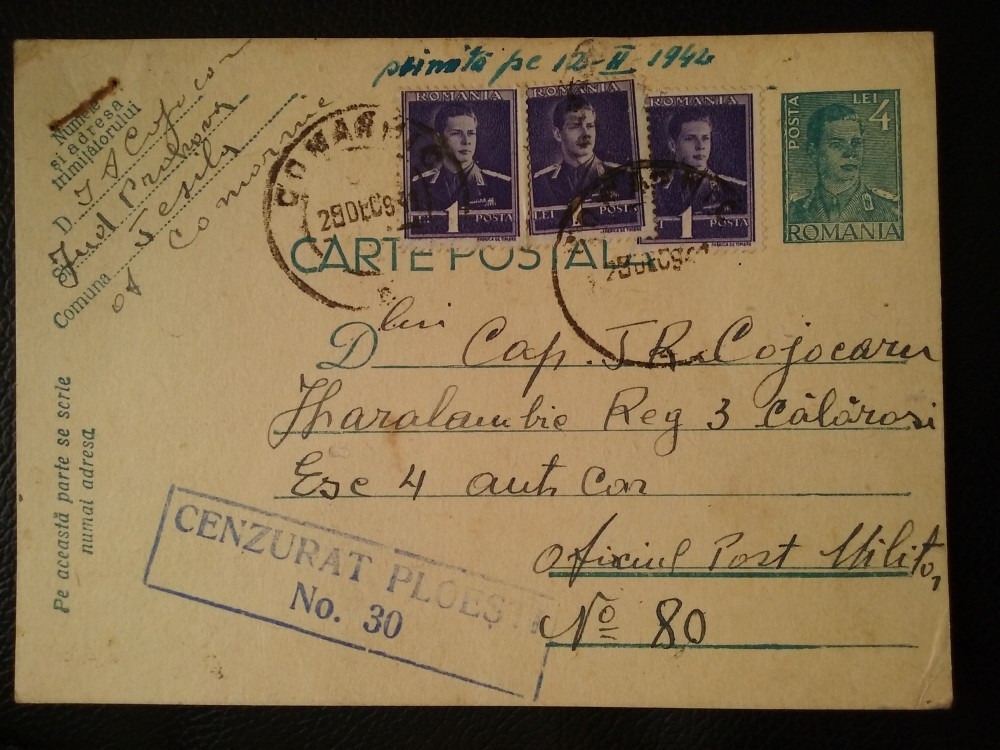 primită pe 12-II 1942
Numele
și adresa
trimițătorului
D.
Jud Prahova
Comuna
Comarnic
ROMANIA
LEI 1 POSTA
ROMANIA
LEI 1 POSTA
ROMANIA
LEI 1 POSTA
POSTA LEI 4
ROMANIA
COMARNIC
29DEC941
COMARNIC
29DEC941
CARTE POSTALĂ
Dlui Cap. T.R. Cojocaru
Haralambie Reg 3 Călărași
Esc 4 auto Car
Oficiul Post Militar
No 80
Pe această parte se scrie
numai adresa
CENZURAT PLOEȘTI
No. 30